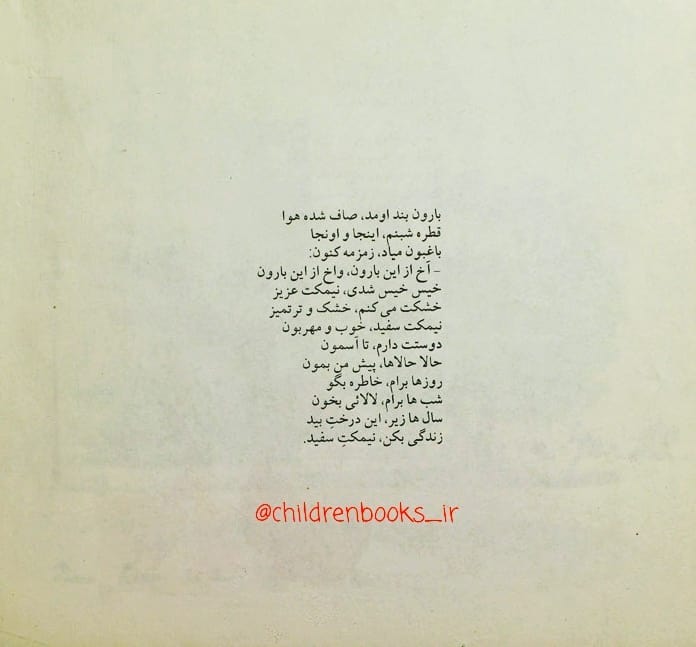 بارون بند اومد، صاف شده هوا
قطره شبنم، اینجا و اونجا
باغبون میاد، زمزمه کنون:
- آخ از این بارون، واخ از این بارون
خیس خیس شدی، نیمکت عزیز
خشکت می‌کنم، خشک و ترتمیز
نیمکت سفید، خوب و مهربون
دوستت دارم، تا آسمون
حالا حالاها، پیش من بمون
روزها برام، خاطره بگو
شب ها برام، لالائی بخون
سال ها زیر، این درختِ بید
زندگی بکن، نیمکتِ سفید.
@childrenbooks_ir